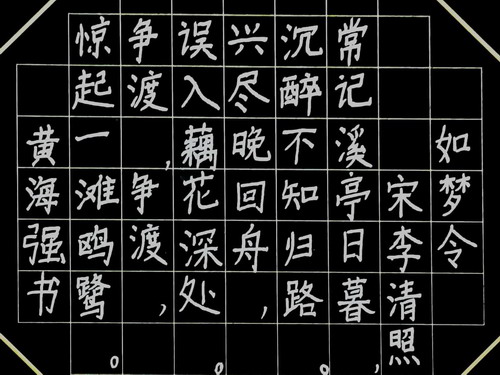 如梦令
宋李清照
常记溪亭日暮,
沉醉不知归路。
兴尽晚回舟,
误入藕花深处。
争渡,争渡,
惊起一滩鸥鹭。
黄海强书